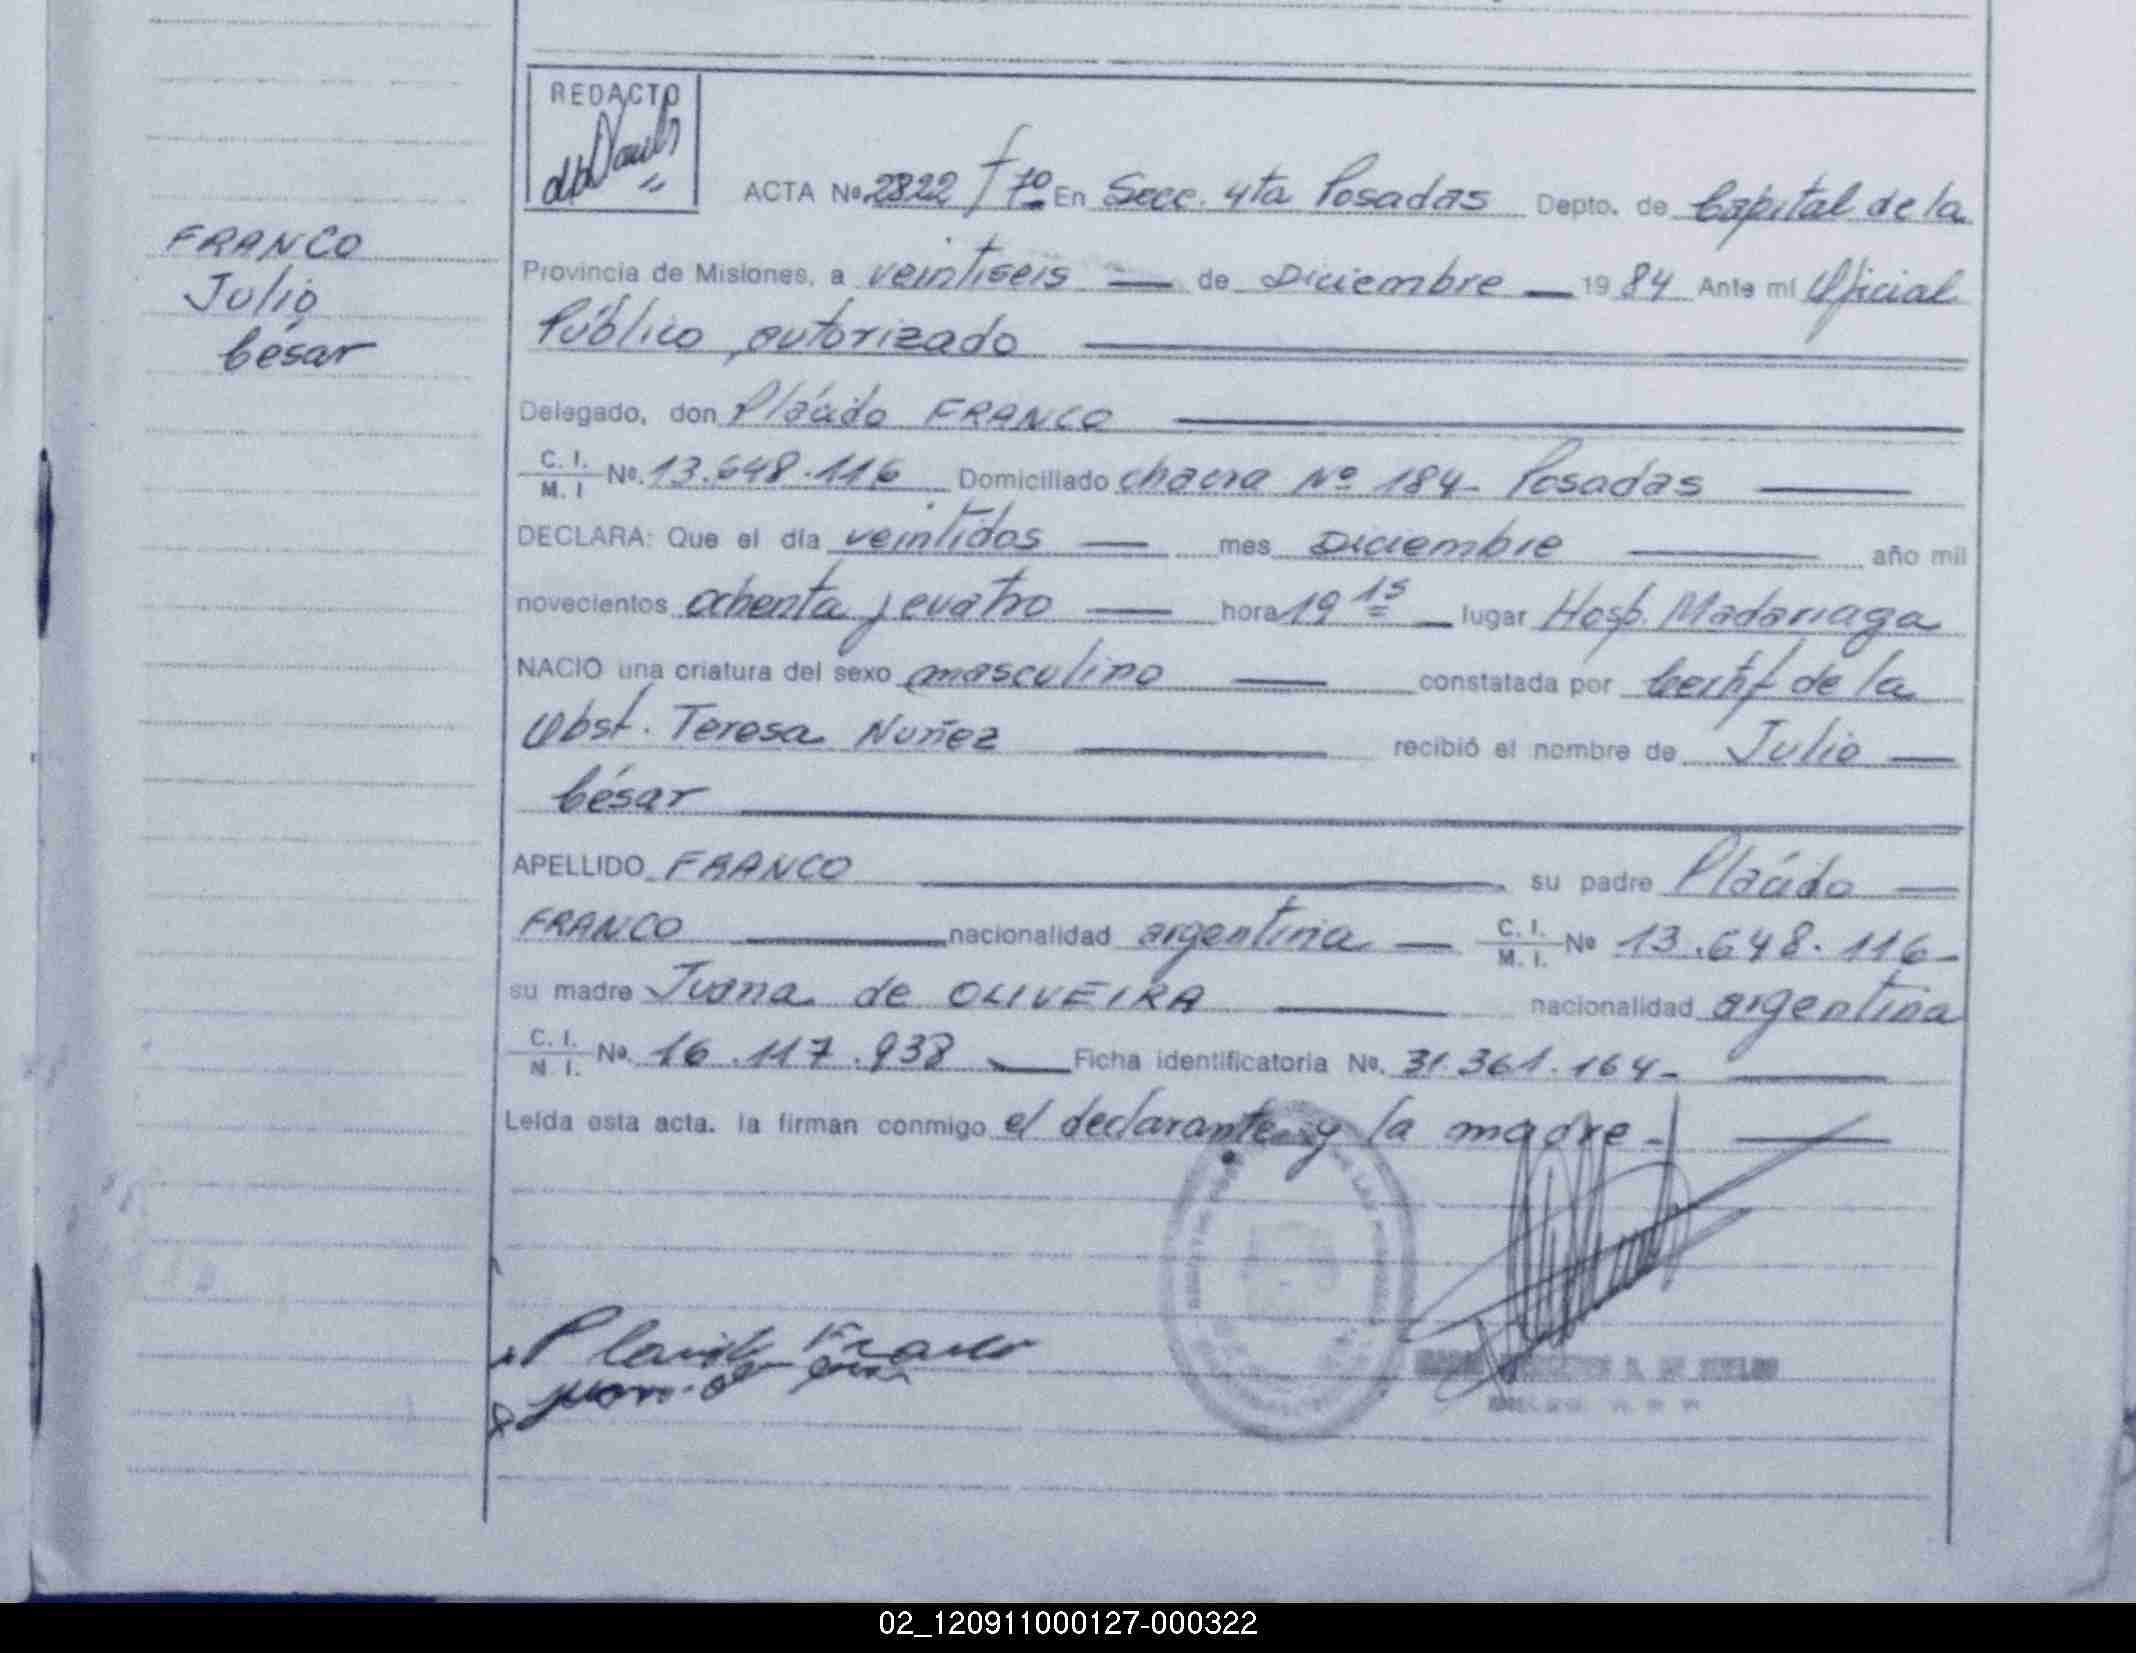 REDACTO
ACTA Nº 2822 Tº 7º En Secc. 4ta Posadas Depto. de Capital de la
FRANCO
Julio
César
Provincia de Misiones, a veintiseis — de Diciembre — 1984 Ante mi Oficial
Público autorizado
Delegado, don Plácido FRANCO
C. I. / M. I Nº. 13.648.116 Domiciliado chacra Nº 184 - Posadas
DECLARA: Que el día veintidos — mes Diciembre — año mil
novecientos ochenta y cuatro — hora 19 15 — lugar Hosp. Madariaga
NACIO una criatura del sexo masculino — constatada por Certif de la
Obst. Teresa Nuñez — recibió el nombre de Julio —
César
APELLIDO FRANCO — su padre Plácido —
FRANCO — nacionalidad argentina — C. I. / M. I. Nº 13.648.116-
su madre Juana de OLIVEIRA — nacionalidad argentina
C. I. / M. I. Nº 16.117.938 — Ficha identificatoria Nº. 31.361.164-
Leida esta acta. la firman conmigo el declarante y la madre-
Placido Franco
02_120911000127-000322